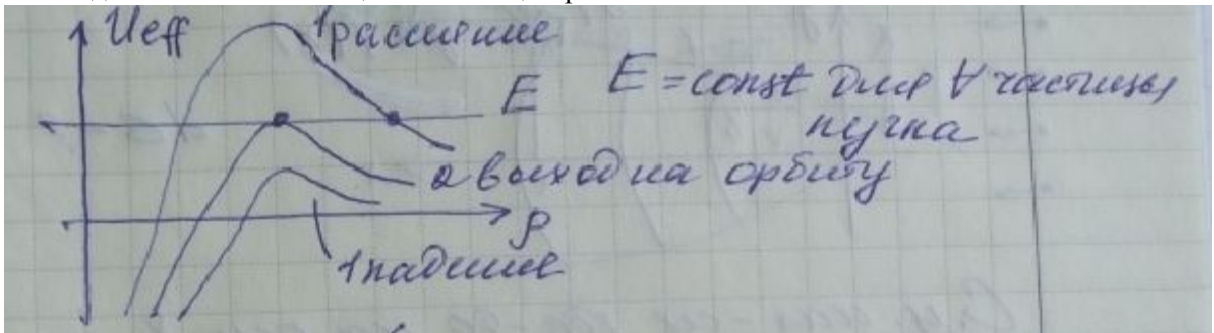 Ueff
1 рассеяние
E
E = const для ∀ частицы
пучка
2 выход на орбиту
ρ
1 падение